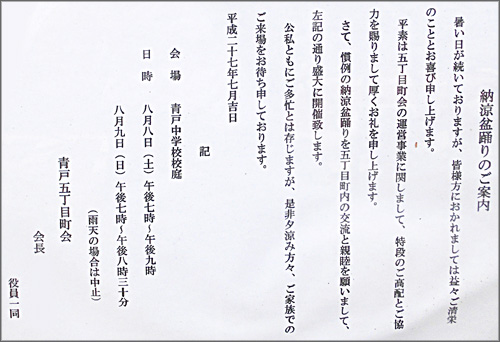 納涼盆踊りのご案内
暑い日が続いておりますが、皆様方におかれましては益々ご清栄
のこととお喜び申し上げます。
平素は五丁目町会の運営事業に関しまして、特段のご高配とご協
力を賜りまして厚くお礼を申し上げます。
さて、慣例の納涼盆踊りを五丁目町内の交流と親睦を願いまして、
左記の通り盛大に開催致します。
公私ともにご多忙とは存じますが、是非夕涼み方々、ご家族での
ご来場をお待ち申しております。
平成二十七年七月吉日
記
会場 青戸中学校校庭
日時 八月八日（土）午後七時～午後九時
八月九日（日）午後七時～午後八時三十分
（雨天の場合は中止）
青戸五丁目町会
会長
役員一同